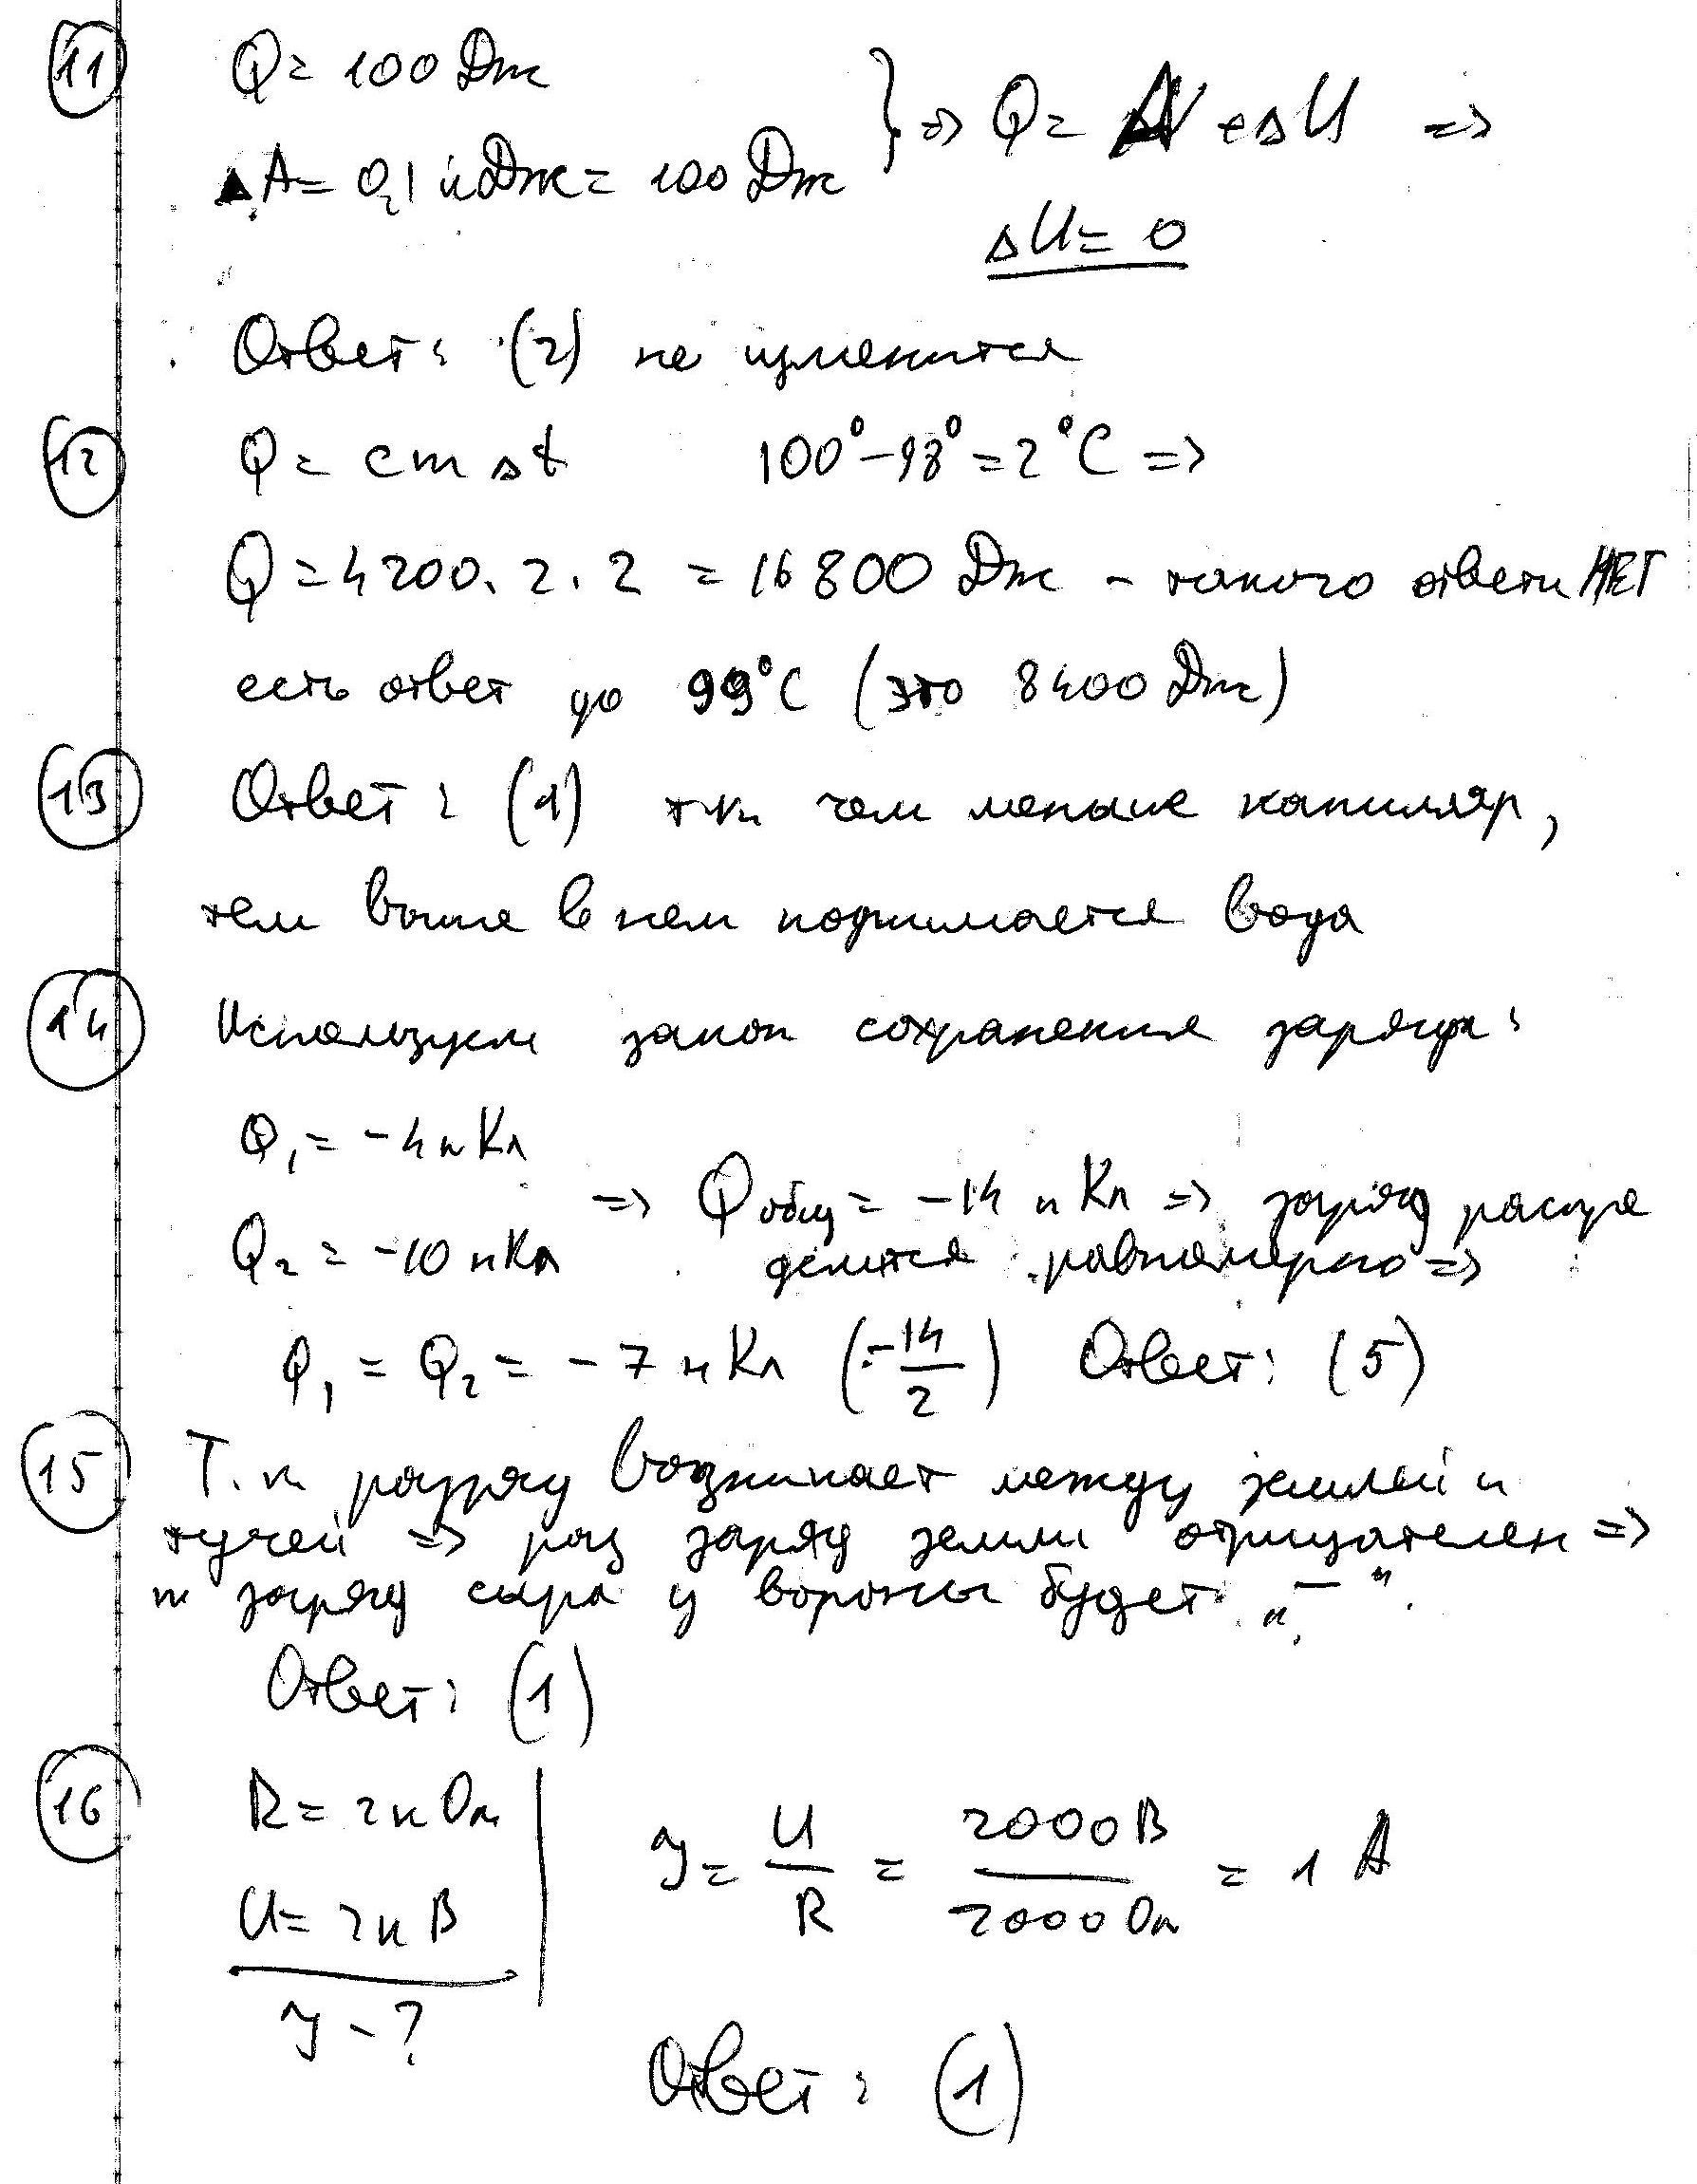 11 Q = 100 Дж
ΔA = 0,1 кДж = 100 Дж } => Q = A + ΔU =>
ΔU = 0
Ответ: (2) не изменится
12 Q = cmΔt 100° - 98° = 2°C =>
Q = 4200 · 2 · 2 = 16800 Дж - такого ответа НЕТ
есть ответ до 99°C (это 8400 Дж)
13 Ответ: (1) т.к. чем меньше капилляр,
тем выше в нем поднимается вода
14 Используем закон сохранения заряда:
Q₁ = -4 нКл
=> Qобщ = -14 нКл => заряд распре
Q₂ = -10 нКл делится равномерно =>
Q₁ = Q₂ = -7 нКл (-14/2) Ответ: (5)
15 Т.к. разряд возникает между землей и
тучей => раз заряд земли отрицателен =>
и заряд сыра у вороны будет „-“.
Ответ: (1)
16 R = 2 кОм
J = U/R = 2000 В/2000 Ом = 1 А
U = 2 кВ
J - ?
Ответ: (1)